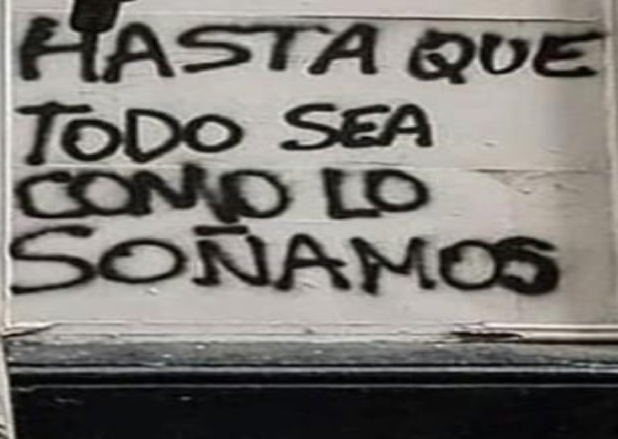 HASTA QUE
TODO SEA
COMO LO
SOÑAMOS